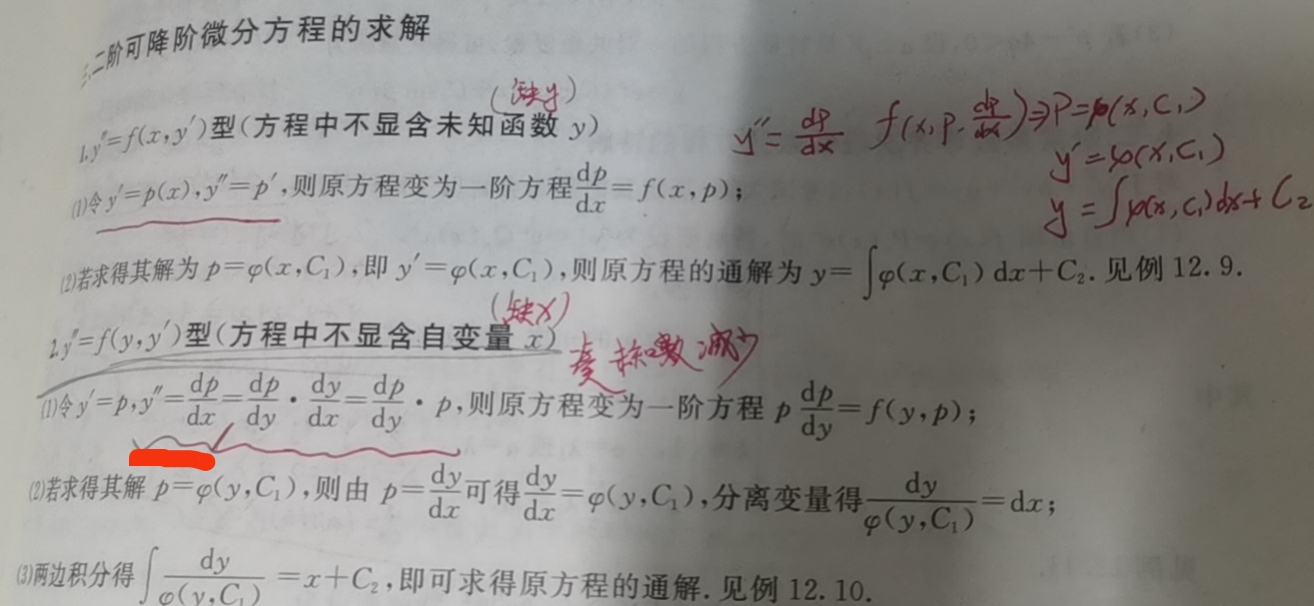 三、二阶可降阶微分方程的求解
(缺y)
1.y″=f(x,y′)型(方程中不显含未知函数 y)
y″=dp/dx f(x,p,dp/dx)⇒P=φ(x,C₁)
y′=φ(x,C₁)
y=∫φ(x,C₁)dx+C₂
(1)令 y′=p(x),y″=p′,则原方程变为一阶方程dp/dx=f(x,p);
(2)若求得其解为 p=φ(x,C₁),即 y′=φ(x,C₁),则原方程的通解为 y=∫φ(x,C₁)dx+C₂.见例 12.9.
(缺x)
2.y″=f(y,y′)型(方程中不显含自变量 x)
减少
(1)令 y′=p,y″=dp/dx=dp/dy·dy/dx=dp/dy·p,则原方程变为一阶方程 p dp/dy=f(y,p);
(2)若求得其解 p=φ(y,C₁),则由 p=dy/dx可得dy/dx=φ(y,C₁),分离变量得dy/φ(y,C₁)=dx;
(3)两边积分得∫dy/φ(y,C₁)=x+C₂,即可求得原方程的通解.见例 12.10.